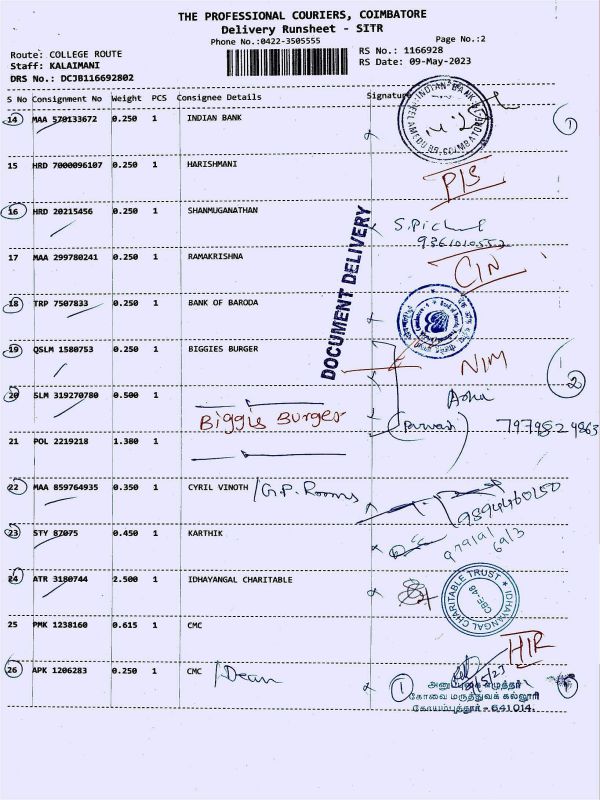 THE PROFESSIONAL COURIERS, COIMBATORE
Delivery Runsheet - SITR
Phone No.:0422-3505555
Page No.:2
Route: COLLEGE ROUTE
RS No.: 1166928
Staff: KALAIMANI
RS Date: 09-May-2023
DRS No.: DCJB116692802
S No Consignment No Weight PCS Consignee Details Signature
14 MAA 570133672 0.250 1 INDIAN BANK
INDIAN BANK
1
15 HRD 7000096107 0.250 1 HARISHMANI
P/S
16 HRD 20215456 0.250 1 SHANMUGANATHAN
DOCUMENT DELIVERY
17 MAA 299780241 0.250 1 RAMAKRISHNA
CIN
18 TRP 7507833 0.250 1 BANK OF BARODA
19 QSLM 1580753 0.250 1 BIGGIES BURGER
NIM
2
20 SLM 319270780 0.500 1
Biggis Burger
21 POL 2219218 1.380 1
22 MAA 859764935 0.350 1 CYRIL VINOTH /G.P. Rooms
9894460150
23 STY 87075 0.450 1 KARTHIK
24 ATR 3180744 2.500 1 IDHAYANGAL CHARITABLE
IDHAYANGAL CHARITABLE TRUST
CBE-48
25 PMK 1238160 0.615 1 CMC
HIR
26 APK 1206283 0.250 1 CMC /Dean
1
கோவை மருத்துவக் கல்லூரி
கோயம்புத்தூர் - 641014.